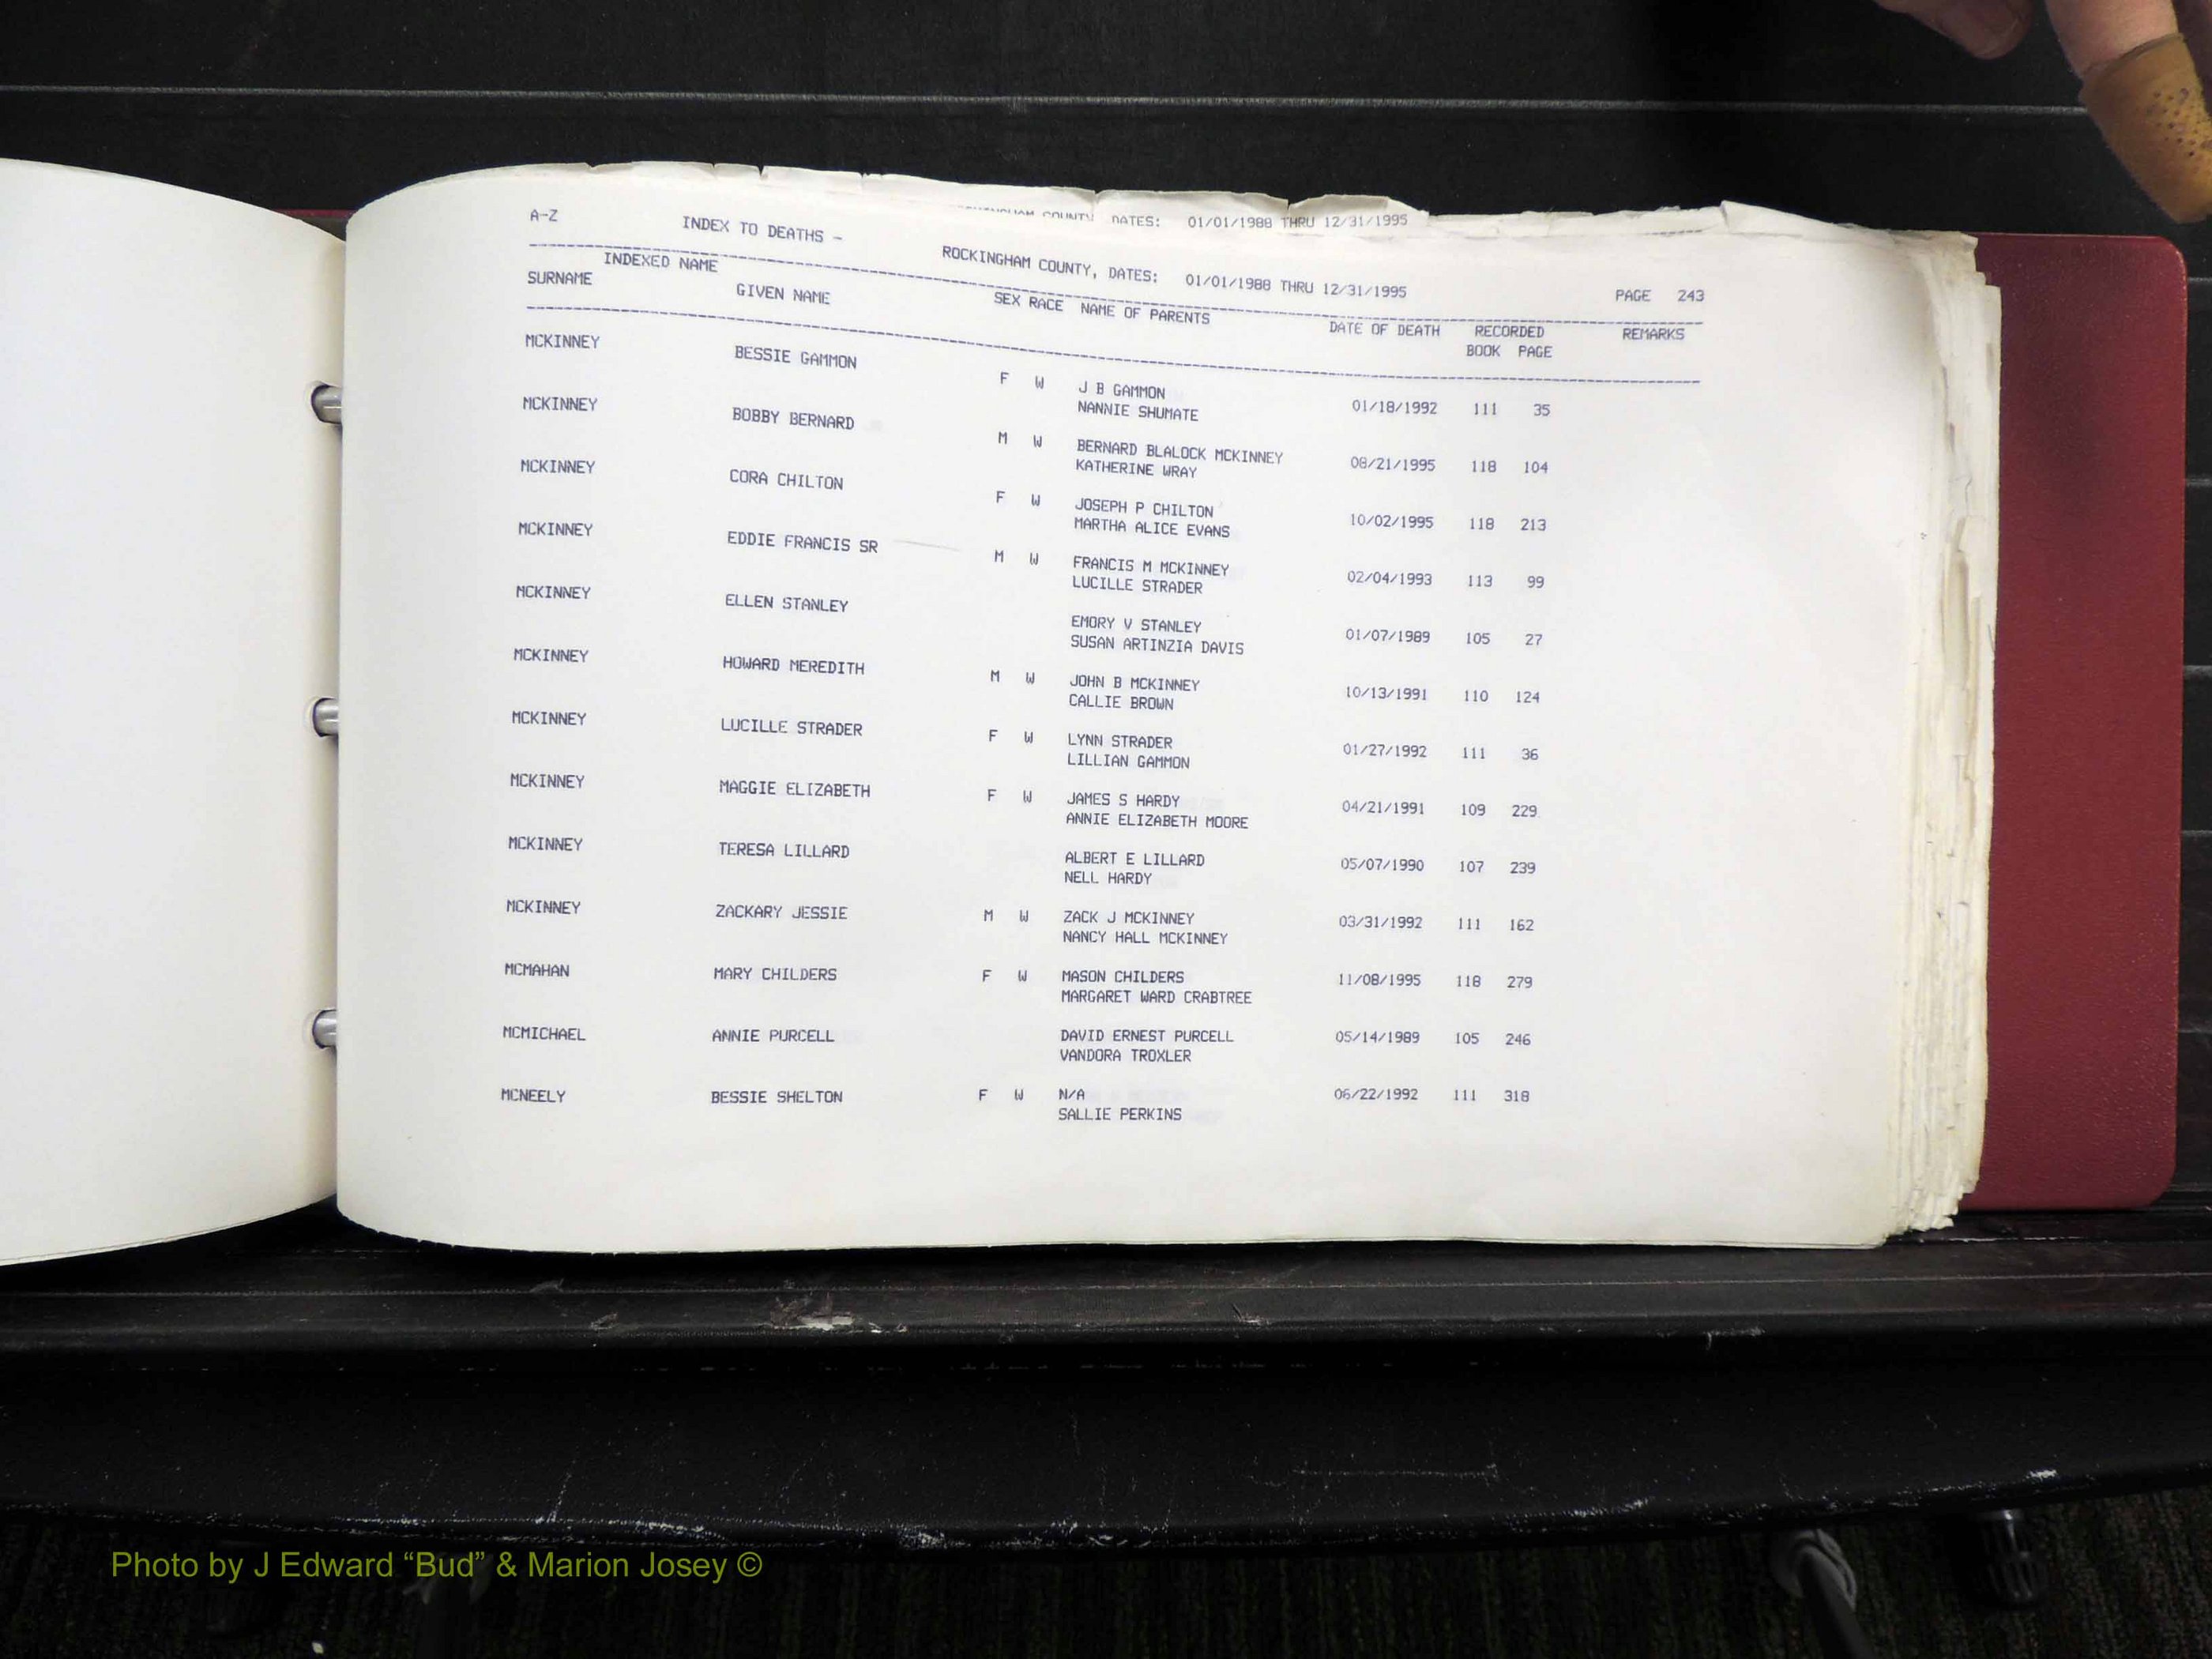 COUNTY DATES: 01/01/1988 THRU 12/31/1995
A-Z INDEX TO DEATHS - ROCKINGHAM COUNTY, DATES: 01/01/1988 THRU 12/31/1995 PAGE 243
INDEXED NAME
SURNAME GIVEN NAME SEX RACE NAME OF PARENTS DATE OF DEATH RECORDED REMARKS
BOOK PAGE
MCKINNEY BESSIE GAMMON F W J B GAMMON 01/18/1992 111 35
NANNIE SHUMATE
MCKINNEY BOBBY BERNARD M W BERNARD BLALOCK MCKINNEY 08/21/1995 118 104
KATHERINE WRAY
MCKINNEY CORA CHILTON F W JOSEPH P CHILTON 10/02/1995 118 213
MARTHA ALICE EVANS
MCKINNEY EDDIE FRANCIS SR M W FRANCIS M MCKINNEY 02/04/1993 113 99
LUCILLE STRADER
MCKINNEY ELLEN STANLEY EMORY V STANLEY 01/07/1989 105 27
SUSAN ARTINZIA DAVIS
MCKINNEY HOWARD MEREDITH M W JOHN B MCKINNEY 10/13/1991 110 124
CALLIE BROWN
MCKINNEY LUCILLE STRADER F W LYNN STRADER 01/27/1992 111 36
LILLIAN GAMMON
MCKINNEY MAGGIE ELIZABETH F W JAMES S HARDY 04/21/1991 109 229
ANNIE ELIZABETH MOORE
MCKINNEY TERESA LILLARD ALBERT E LILLARD 05/07/1990 107 239
NELL HARDY
MCKINNEY ZACKARY JESSIE M W ZACK J MCKINNEY 03/31/1992 111 162
NANCY HALL MCKINNEY
MCMAHAN MARY CHILDERS F W MASON CHILDERS 11/08/1995 118 279
MARGARET WARD CRABTREE
MCMICHAEL ANNIE PURCELL DAVID ERNEST PURCELL 05/14/1989 105 246
VANDORA TROXLER
MCNEELY BESSIE SHELTON F W N/A 06/22/1992 111 318
SALLIE PERKINS
Photo by J Edward “Bud” & Marion Josey ©